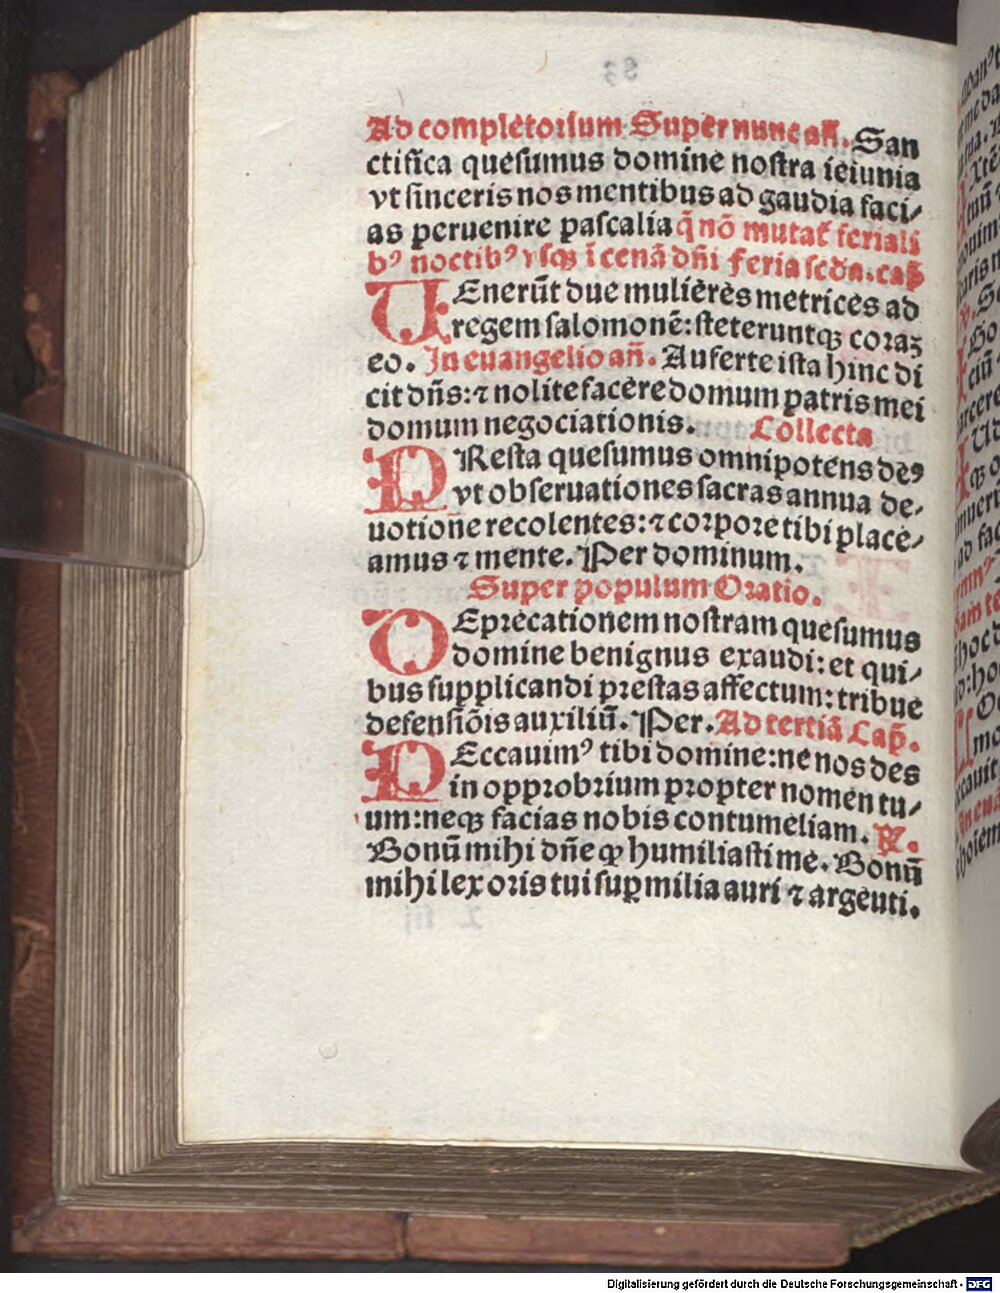 Ad completorium Super nunc añ. San
ctifica quesumus domine nostra ieiunia
vt sinceris nos mentibus ad gaudia faci⸗
as peruenire pascalia q̃ nõ mutat̃ feriali
bꝰ noctibꝰ vsqꝫ ĩ cenã dñi feria scđa. cap̃
VEnerũt due mulieres metrices ad
regem salomonẽ: steteruntqꝫ coraꝫ
eo. In euangelio añ. Auferte ista hinc di
cit dñs: ⁊ nolite facere domum patris mei
domum negociationis. Collecta
PResta quesumus omnipotens deꝰ
vt obseruationes sacras annua de⸗
uotione recolentes: ⁊ corpore tibi place⸗
amus ⁊ mente. Per dominum.
Super populum Oratio.
DEprecationem nostram quesumus
domine benignus exaudi: et qui⸗
bus supplicandi prestas affectum: tribue
defensiõis auxiliũ. Per. Ad tertiã Cap̃.
PEccauimꝰ tibi domine: ne nos des
in opprobrium propter nomen tu⸗
um: neqꝫ facias nobis contumeliam. ℟.
Bonũ mihi dñe ꝙ humiliasti me. Bonũ
mihi lex oris tui suꝑ milia auri ⁊ argenti.
Digitalisierung gefördert durch die Deutsche Forschungsgemeinschaft - DFG